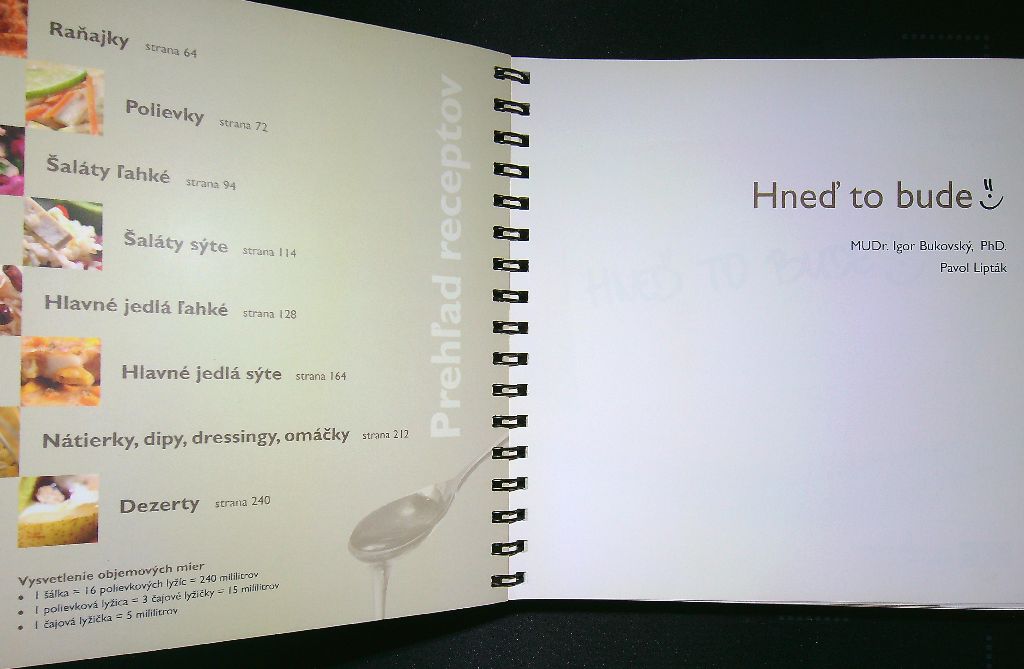 Raňajky strana 64
Polievky strana 72
Šaláty ľahké strana 94
Šaláty sýte strana 114
Hlavné jedlá ľahké strana 128
Hlavné jedlá sýte strana 164
Nátierky, dipy, dressingy, omáčky strana 212
Dezerty strana 240
Prehľad receptov
Vysvetlenie objemových mier
• 1 šálka = 16 polievkových lyžíc = 240 mililitrov
• 1 polievková lyžica = 3 čajové lyžičky = 15 mililitrov
• 1 čajová lyžička = 5 mililitrov
Hneď to bude
MUDr. Igor Bukovský, PhD.
Pavol Lipták
HNEĎ TO BUDE